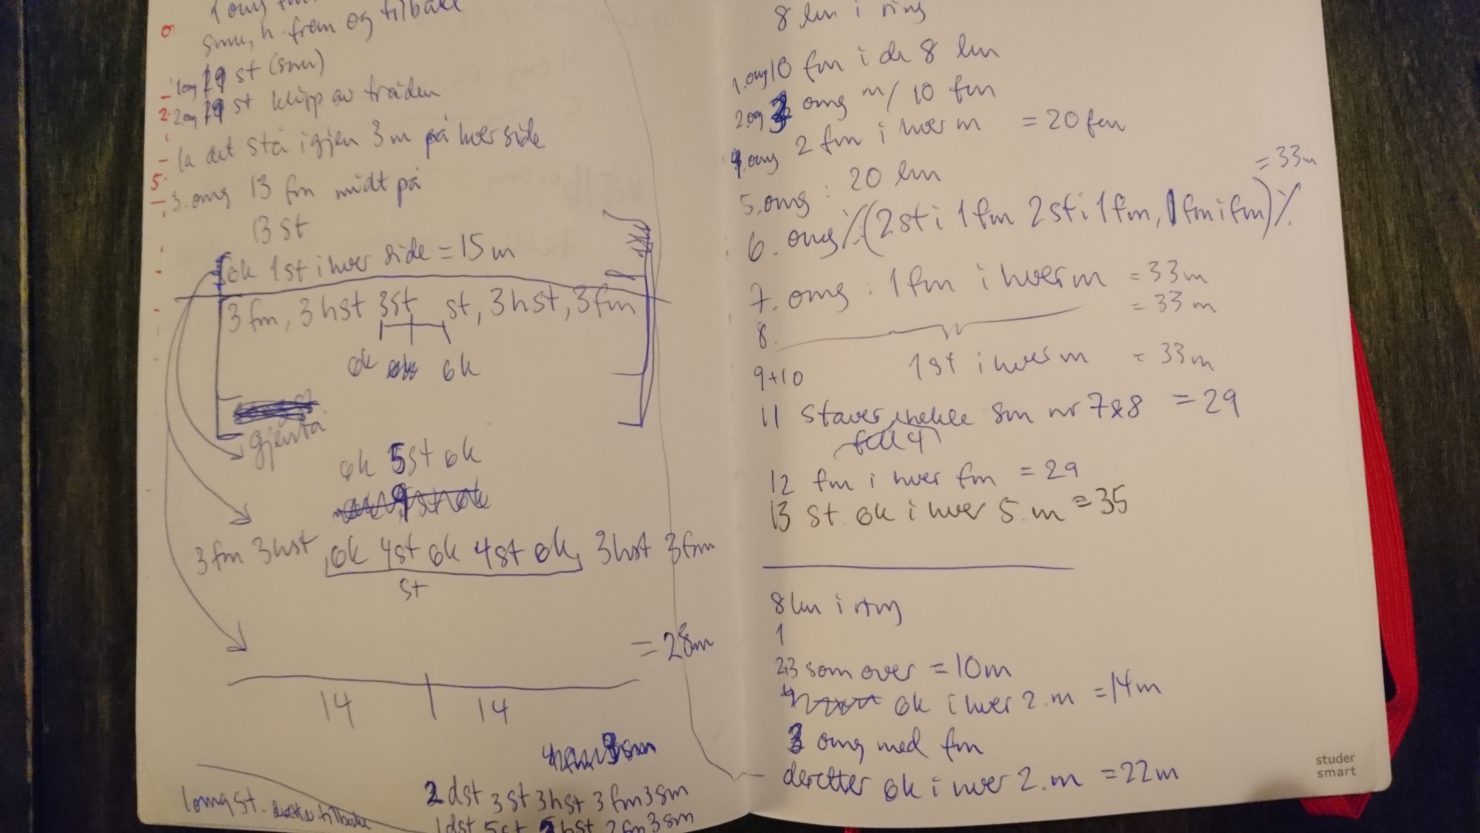 1 omg
smu, h. frem og tilbake
1 omg 19 st (smu)
2 omg 19 st klipp av tråden
la det stå igjen 3 m på hver side
3. omg 13 fm midt på
13 st
øk 1st i hver side = 15 m
3 fm, 3 hst 3st st, 3 hst, 3 fm
øk øk øk
gjenta
øk 5st øk
3 fm 3 hst øk 4st øk 4st øk, 3 hst 3 fm
st
= 28 m
14 14
3 sm
2 dst 3 st 3 hst 3 fm 3 sm
1 omg st. tilbake
1 dst 5 st 2 hst 2 fm 3 sm
8 lm i ring
1. omg 10 fm i de 8 lm
2. omg 3 omg m/ 10 fm
4. omg 2 fm i hver m = 20 fm
5. omg: 20 lm
= 33 m
6. omg ٪(2 st i 1 fm 2 st i 1 fm, 1 fm i fm)٪
7. omg: 1 fm i hver m = 33 m
8. = 33 m
9+10 1 st i hver m = 33 m
11 staver sm nr 7&8 = 29
fell 4
12 fm i hver fm = 29
13 st. øk i hver 5. m = 35
8 lm i ring
1
2+3 som over = 10 m
øk i hver 2. m = 14 m
3 omg med fm
deretter øk i hver 2. m = 22 m
studer
smart